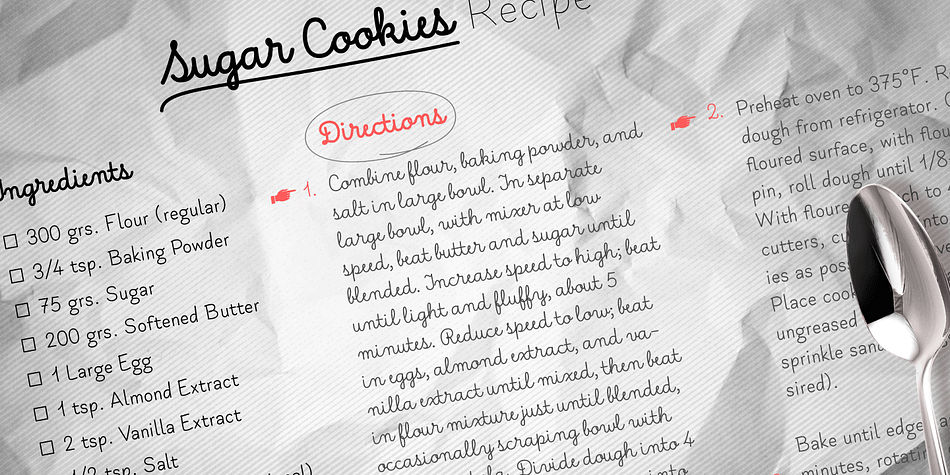 Sugar Cookies Recipe
Ingredients
300 grs. Flour (regular)
3/4 tsp. Baking Powder
75 grs. Sugar
200 grs. Softened Butter
1 Large Egg
1 tsp. Almond Extract
2 tsp. Vanilla Extract
1/2 tsp. Salt
Directions
1. Combine flour, baking powder, and
salt in large bowl. In separate
large bowl, with mixer at low
speed, beat butter and sugar until
blended. Increase speed to high; beat
until light and fluffy, about 5
minutes. Reduce speed to low; beat
in eggs, almond extract, and va-
nilla extract until mixed, then beat
in flour mixture just until blended,
occasionally scraping bowl with
Divide dough into 4
into
2. Preheat oven to 375°F. R
dough from refrigerator.
floured surface, with flou
pin, roll dough until 1/8
With floure ch to
cutters, cu into
ies as pos
Place cook
ungreased
sprinkle san
sired).
Bake until edge
minutes, rotatin